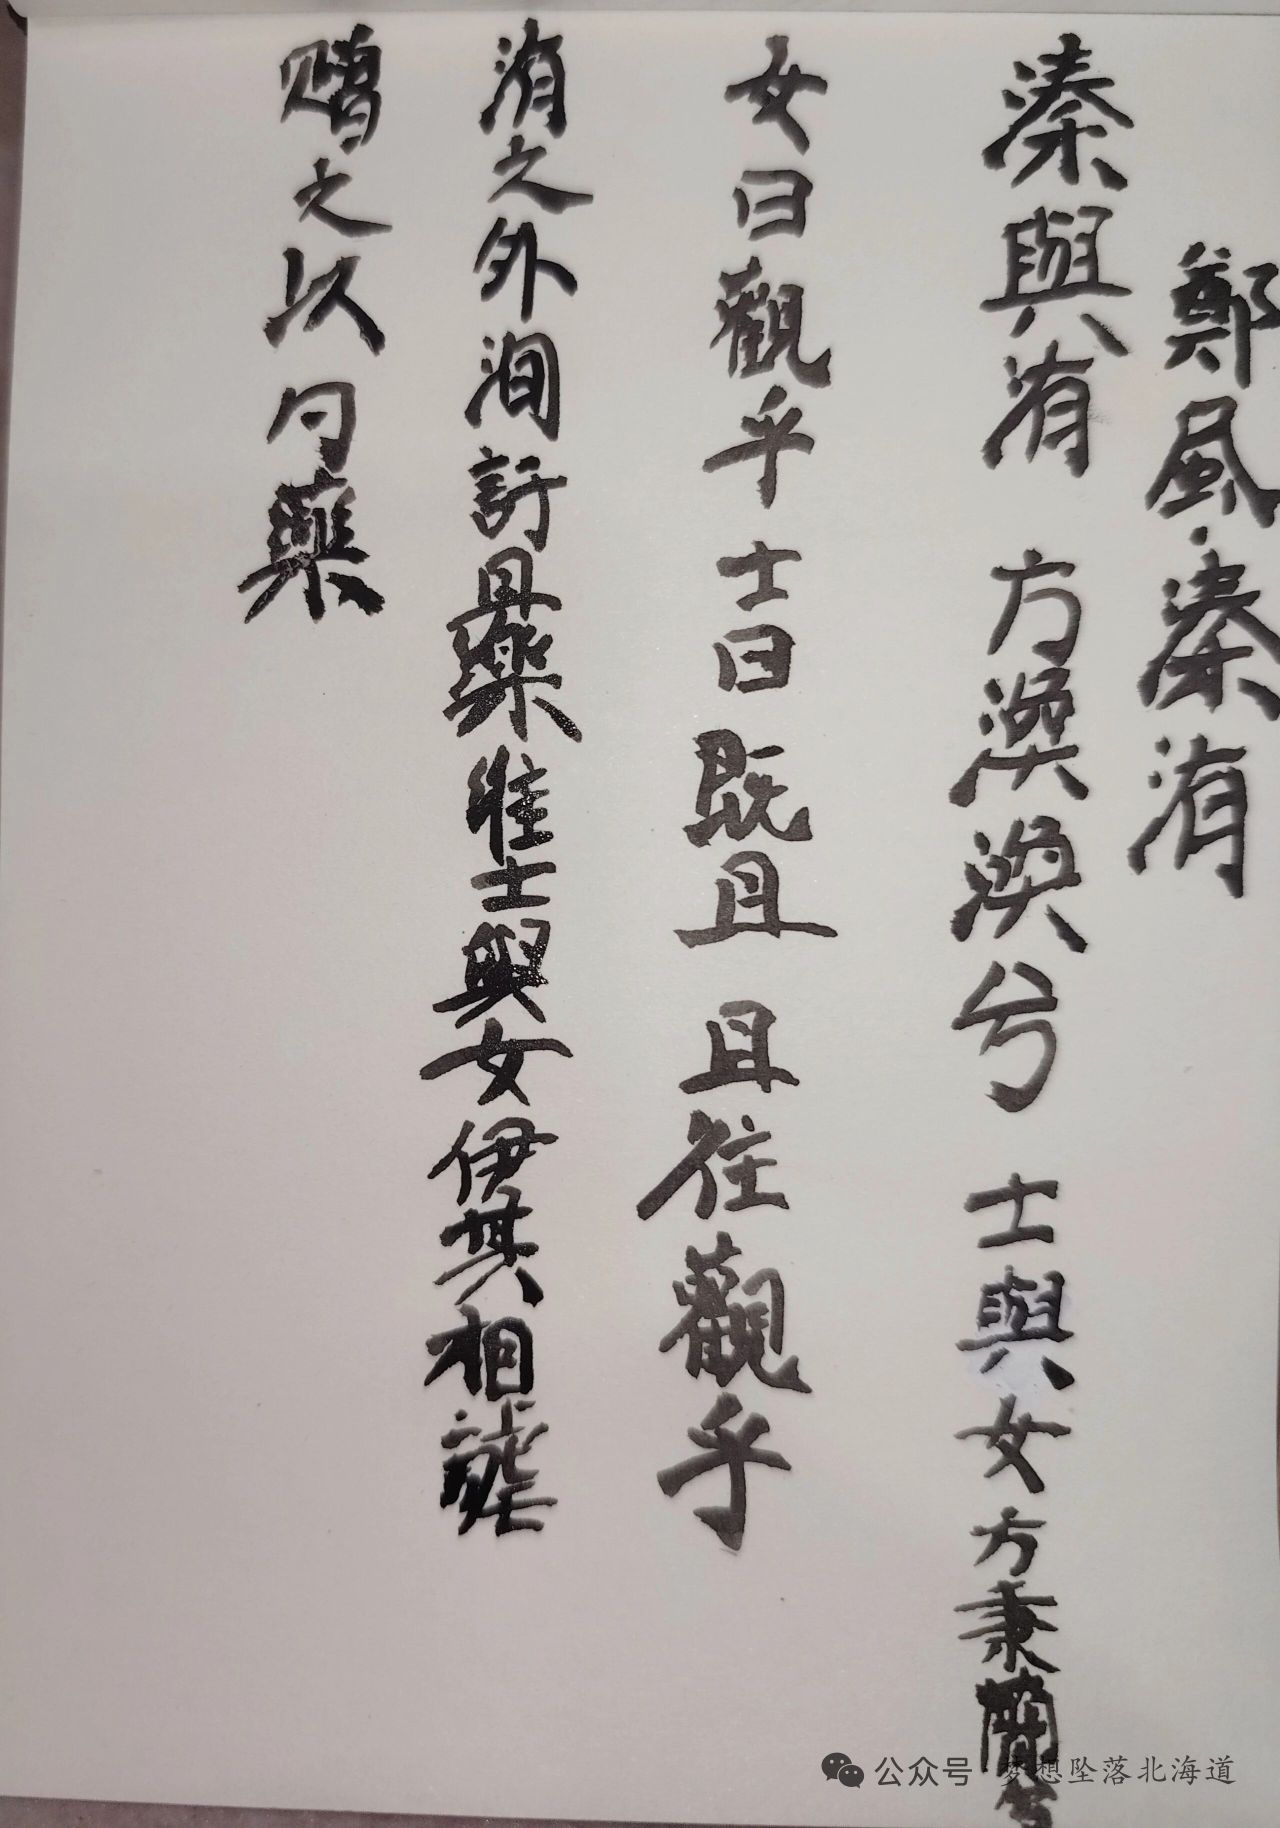 鄭風·溱洧
溱與洧 方渙渙兮 士與女方秉蕑兮
女曰觀乎 士曰既且 且往觀乎
洧之外洵訏且樂維士與女伊其相謔
贈之以勺藥
公众号·梦想坠落北海道